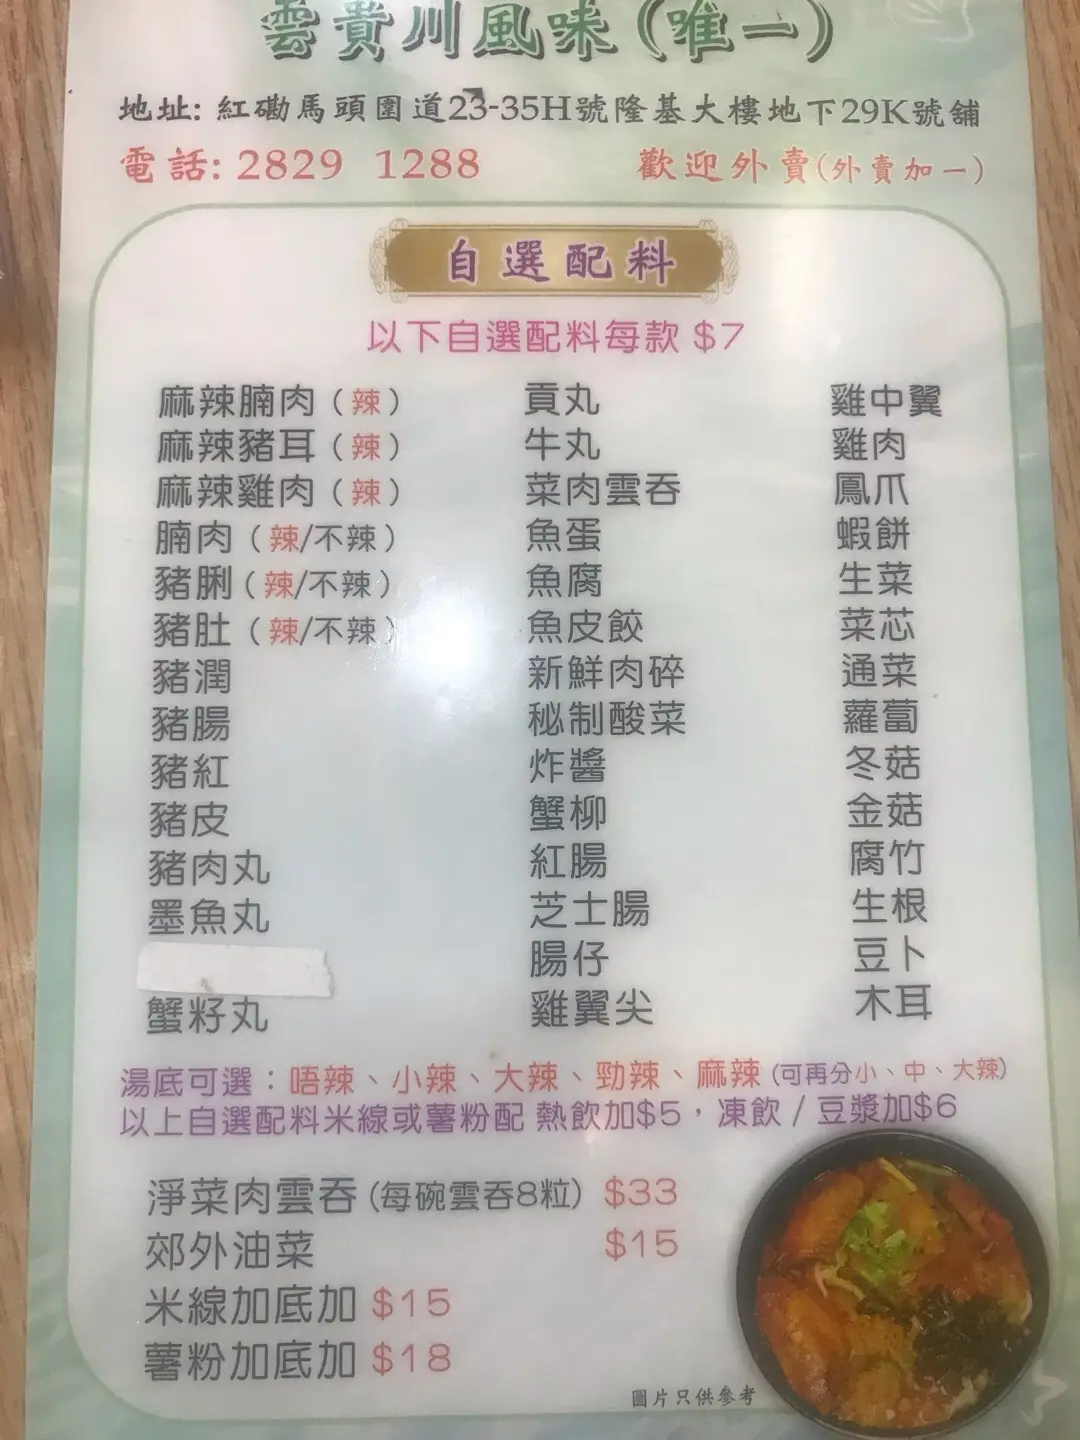 雲貴川風味(唯一)
地址: 紅磡馬頭圍道23-35H號隆基大樓地下29K號舖
電話: 2829 1288 歡迎外賣(外賣加一)
自選配料
以下自選配料每款 $7
麻辣腩肉（辣） 貢丸 雞中翼
麻辣豬耳（辣） 牛丸 雞肉
麻辣雞肉（辣） 菜肉雲吞 鳳爪
腩肉（辣/不辣） 魚蛋 蝦餅
豬脷（辣/不辣） 魚腐 生菜
豬肚（辣/不辣） 魚皮餃 菜芯
豬潤 新鮮肉碎 通菜
豬腸 秘制酸菜 蘿蔔
豬紅 炸醬 冬菇
豬皮 蟹柳 金菇
豬肉丸 紅腸 腐竹
墨魚丸 芝士腸 生根
腸仔 豆卜
蟹籽丸 雞翼尖 木耳
湯底可選：唔辣、小辣、大辣、勁辣、麻辣 (可再分小、中、大辣)
以上自選配料米線或薯粉配 熱飲加$5，凍飲 / 豆漿加$6
淨菜肉雲吞 (每碗雲吞8粒) $33
郊外油菜 $15
米線加底加 $15
薯粉加底加 $18
圖片只供參考